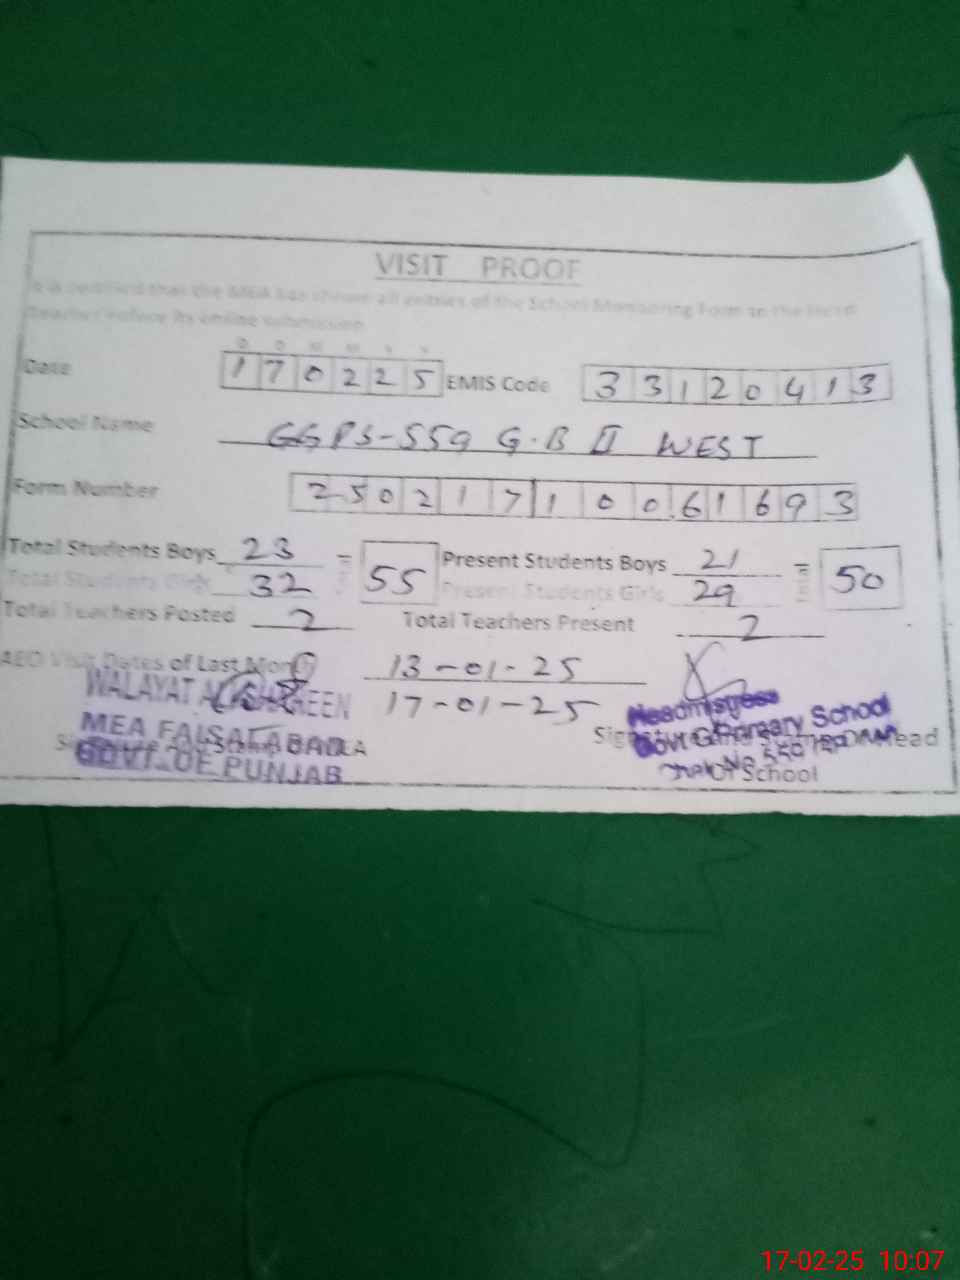 VISIT PROOF
It is certified that the MEA has shown all entries of the School Monitoring Form to the Head
Teacher before its online submission
D D M M Y Y
Date 170225 EMIS Code 33120413
School Name GGPS-559 G.B II WEST
Form Number 25021710061693
Total Students Boys 23 = 55 Present Students Boys 21 = 50
Total Students Girls 32 Present Students Girls 29
Total Teachers Posted 2 Total Teachers Present 2
AEO Visit Dates of Last Month 13-01-25
17-01-25
WALAYAT
MEA FAISALABAD
GOVT. OF PUNJAB
Headmistress
Govt G Primary School
Head
of School
17-02-25 10:07